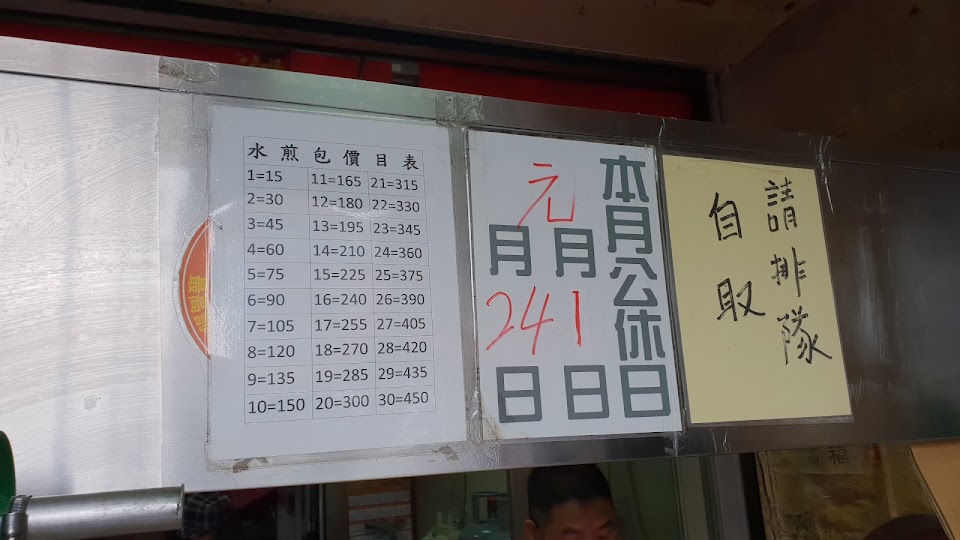 水煎包價目表
1=15 11=165 21=315
2=30 12=180 22=330
3=45 13=195 23=345
4=60 14=210 24=360
5=75 15=225 25=375
6=90 16=240 26=390
7=105 17=255 27=405
8=120 18=270 28=420
9=135 19=285 29=435
10=150 20=300 30=450
本月公休日
元月1日
月24日
請排隊
自取
福